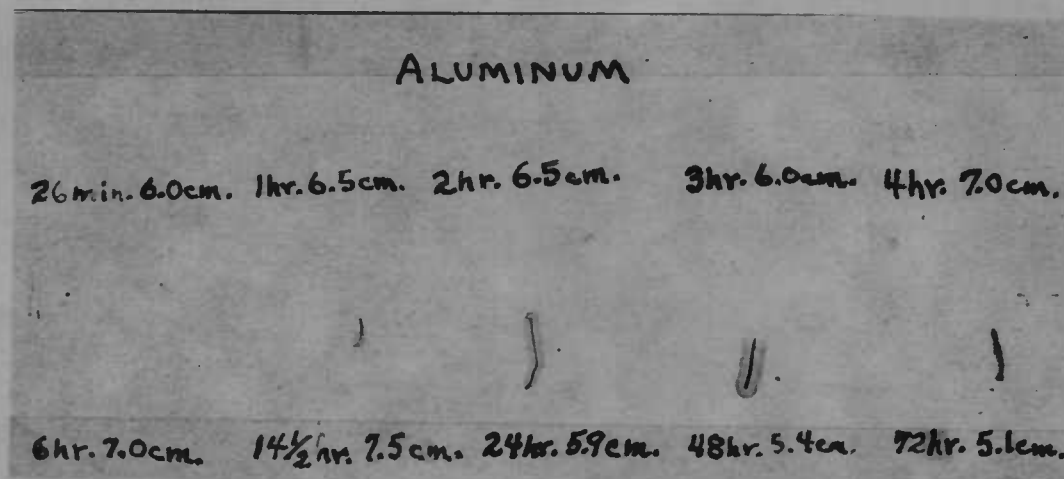 ALUMINUM
26 min. 6.0cm. 1hr. 6.5cm. 2hr. 6.5cm. 3hr. 6.0cm. 4hr. 7.0cm.
6hr. 7.0cm. 14½hr. 7.5cm. 24hr. 5.9cm. 48hr. 5.4cm. 72hr. 5.1cm.